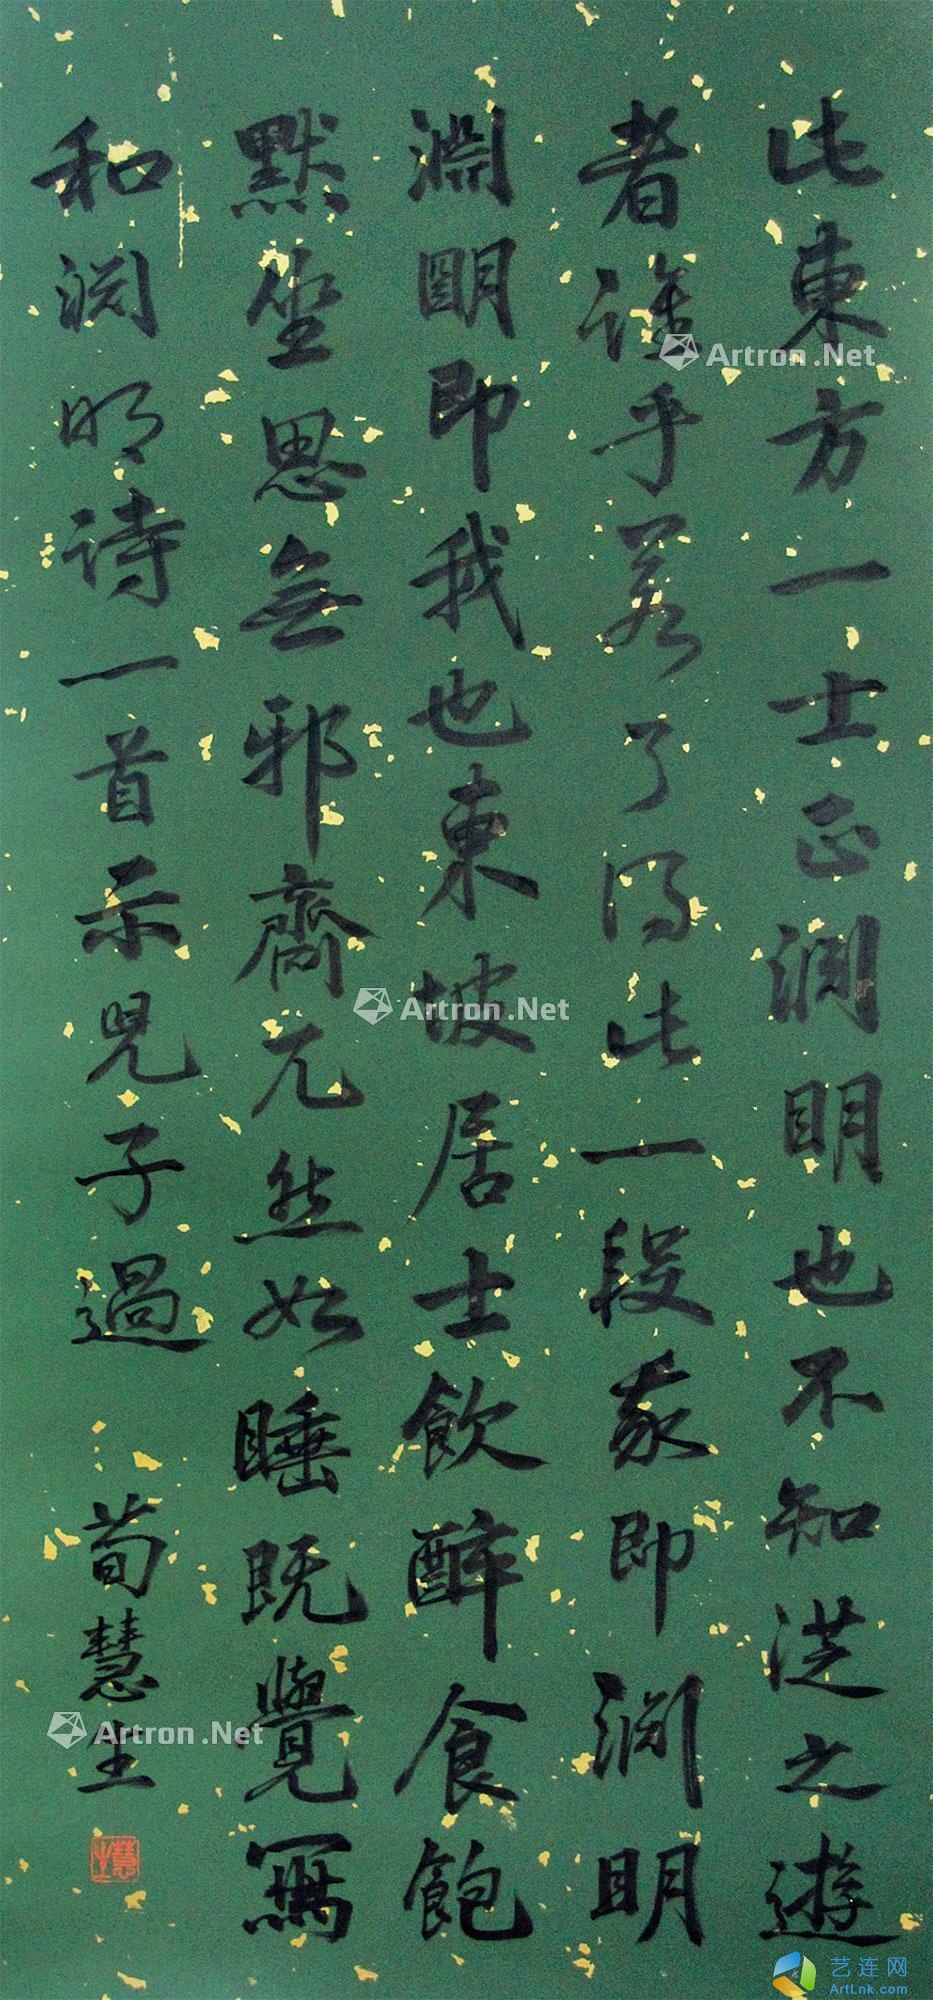 此東方一士正淵明也不知從之遊
者誰乎若了得此一段我即淵明
淵明即我也東坡居士飲醉食飽
默坐思無邪齋兀然如睡既覺寫
和渊明诗一首示兒子過
荀慧生
慧生
Artron.Net
Artron.Net
Artron.Net
艺连网
ArtLnk.com